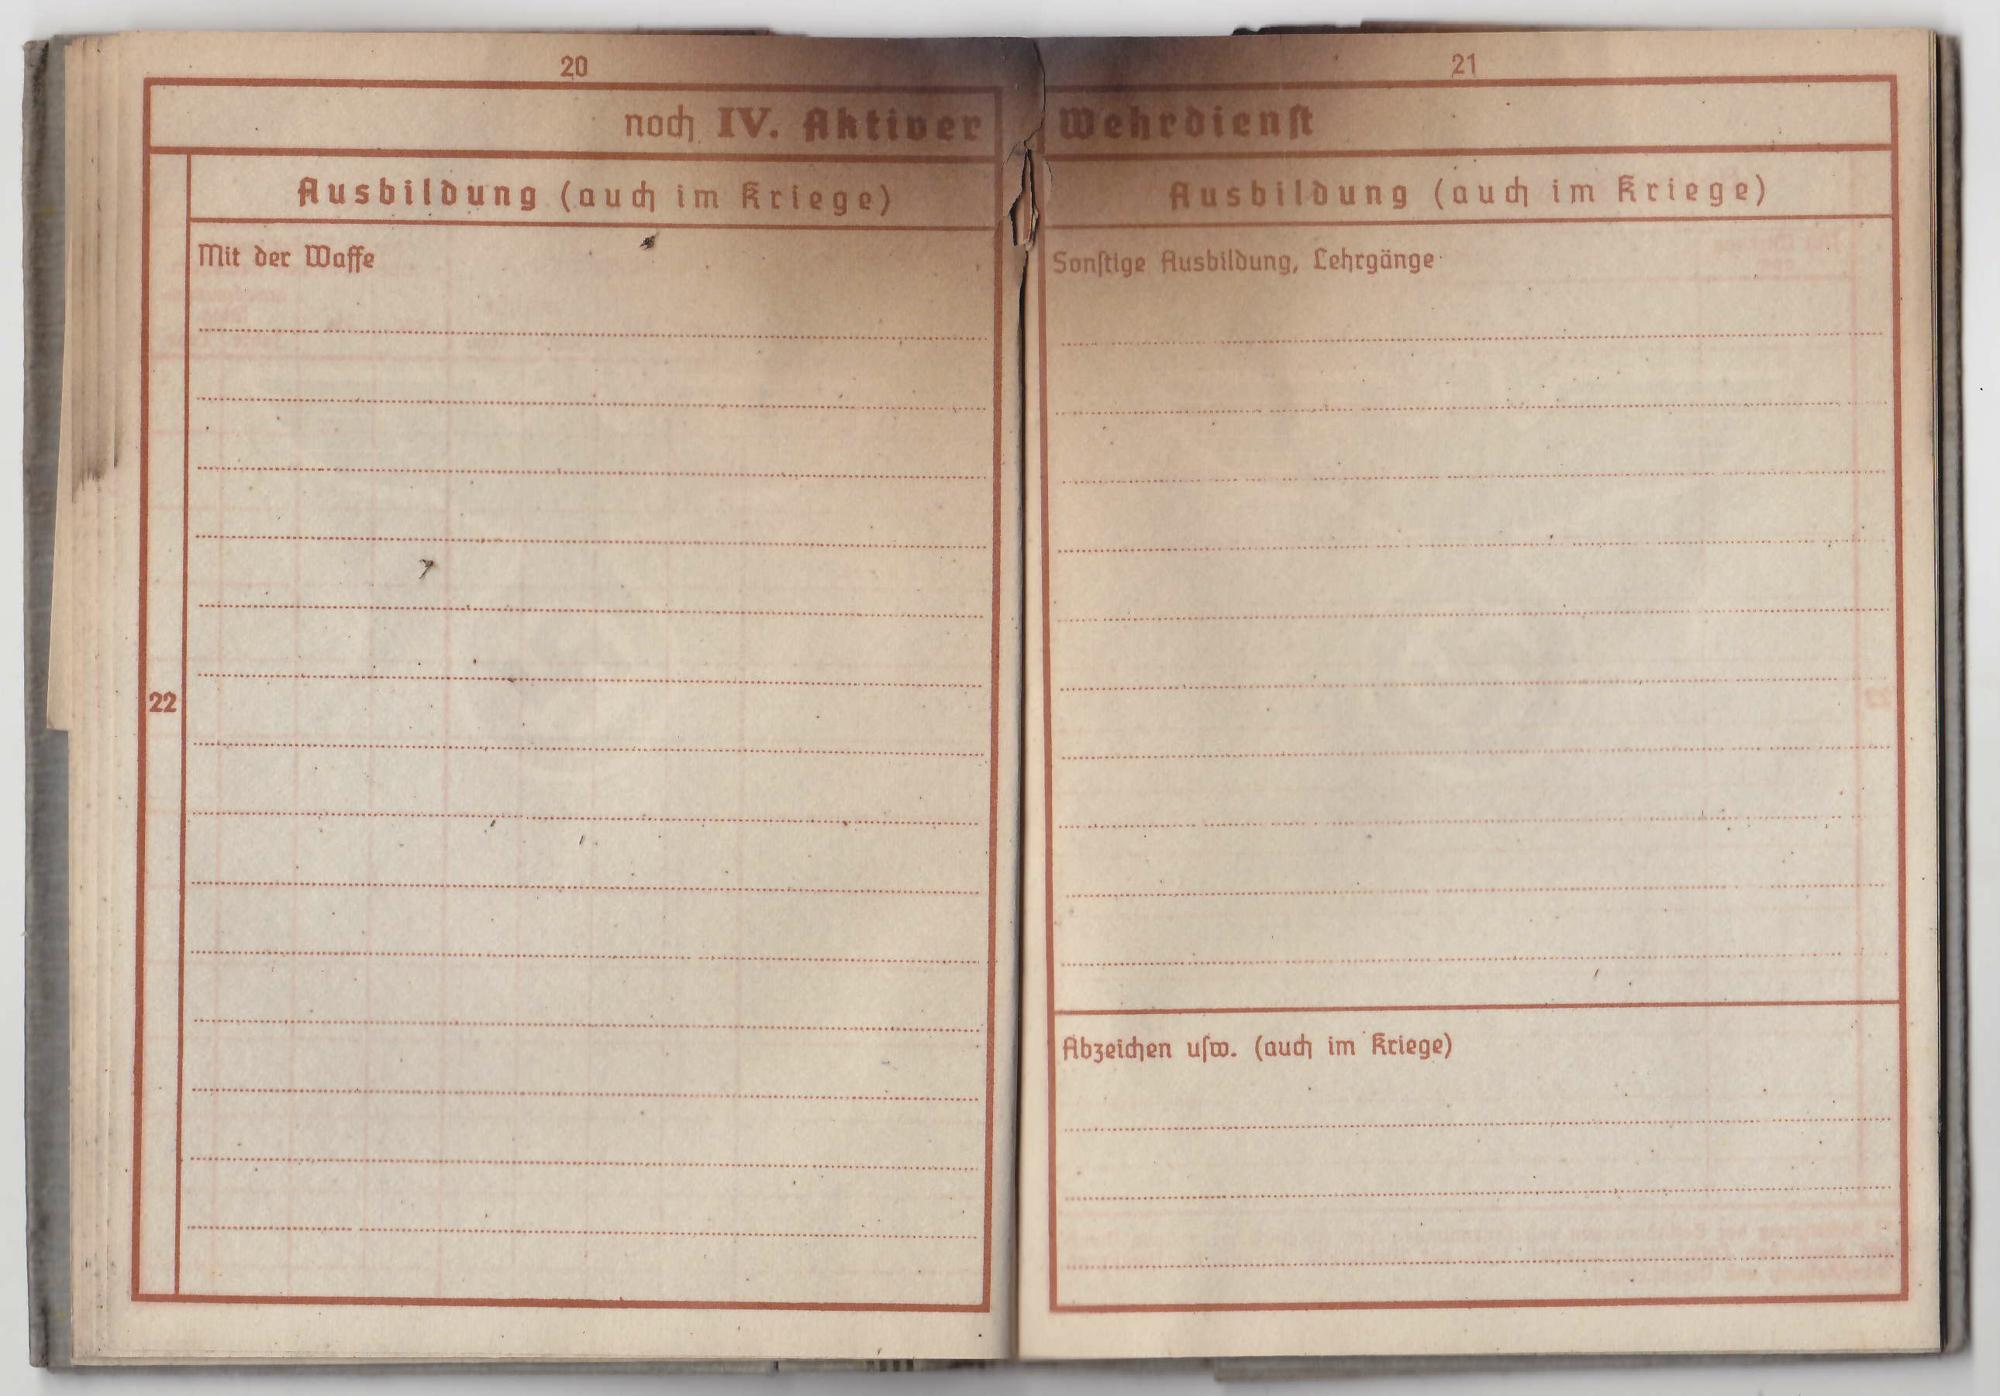 20
noch IV. Aktiver
Ausbildung (auch im Kriege)
Mit der Waffe
22
21
Wehrdienſt
Ausbildung (auch im Kriege)
Sonſtige Ausbildung, Lehrgänge
Abzeichen uſw. (auch im Kriege)